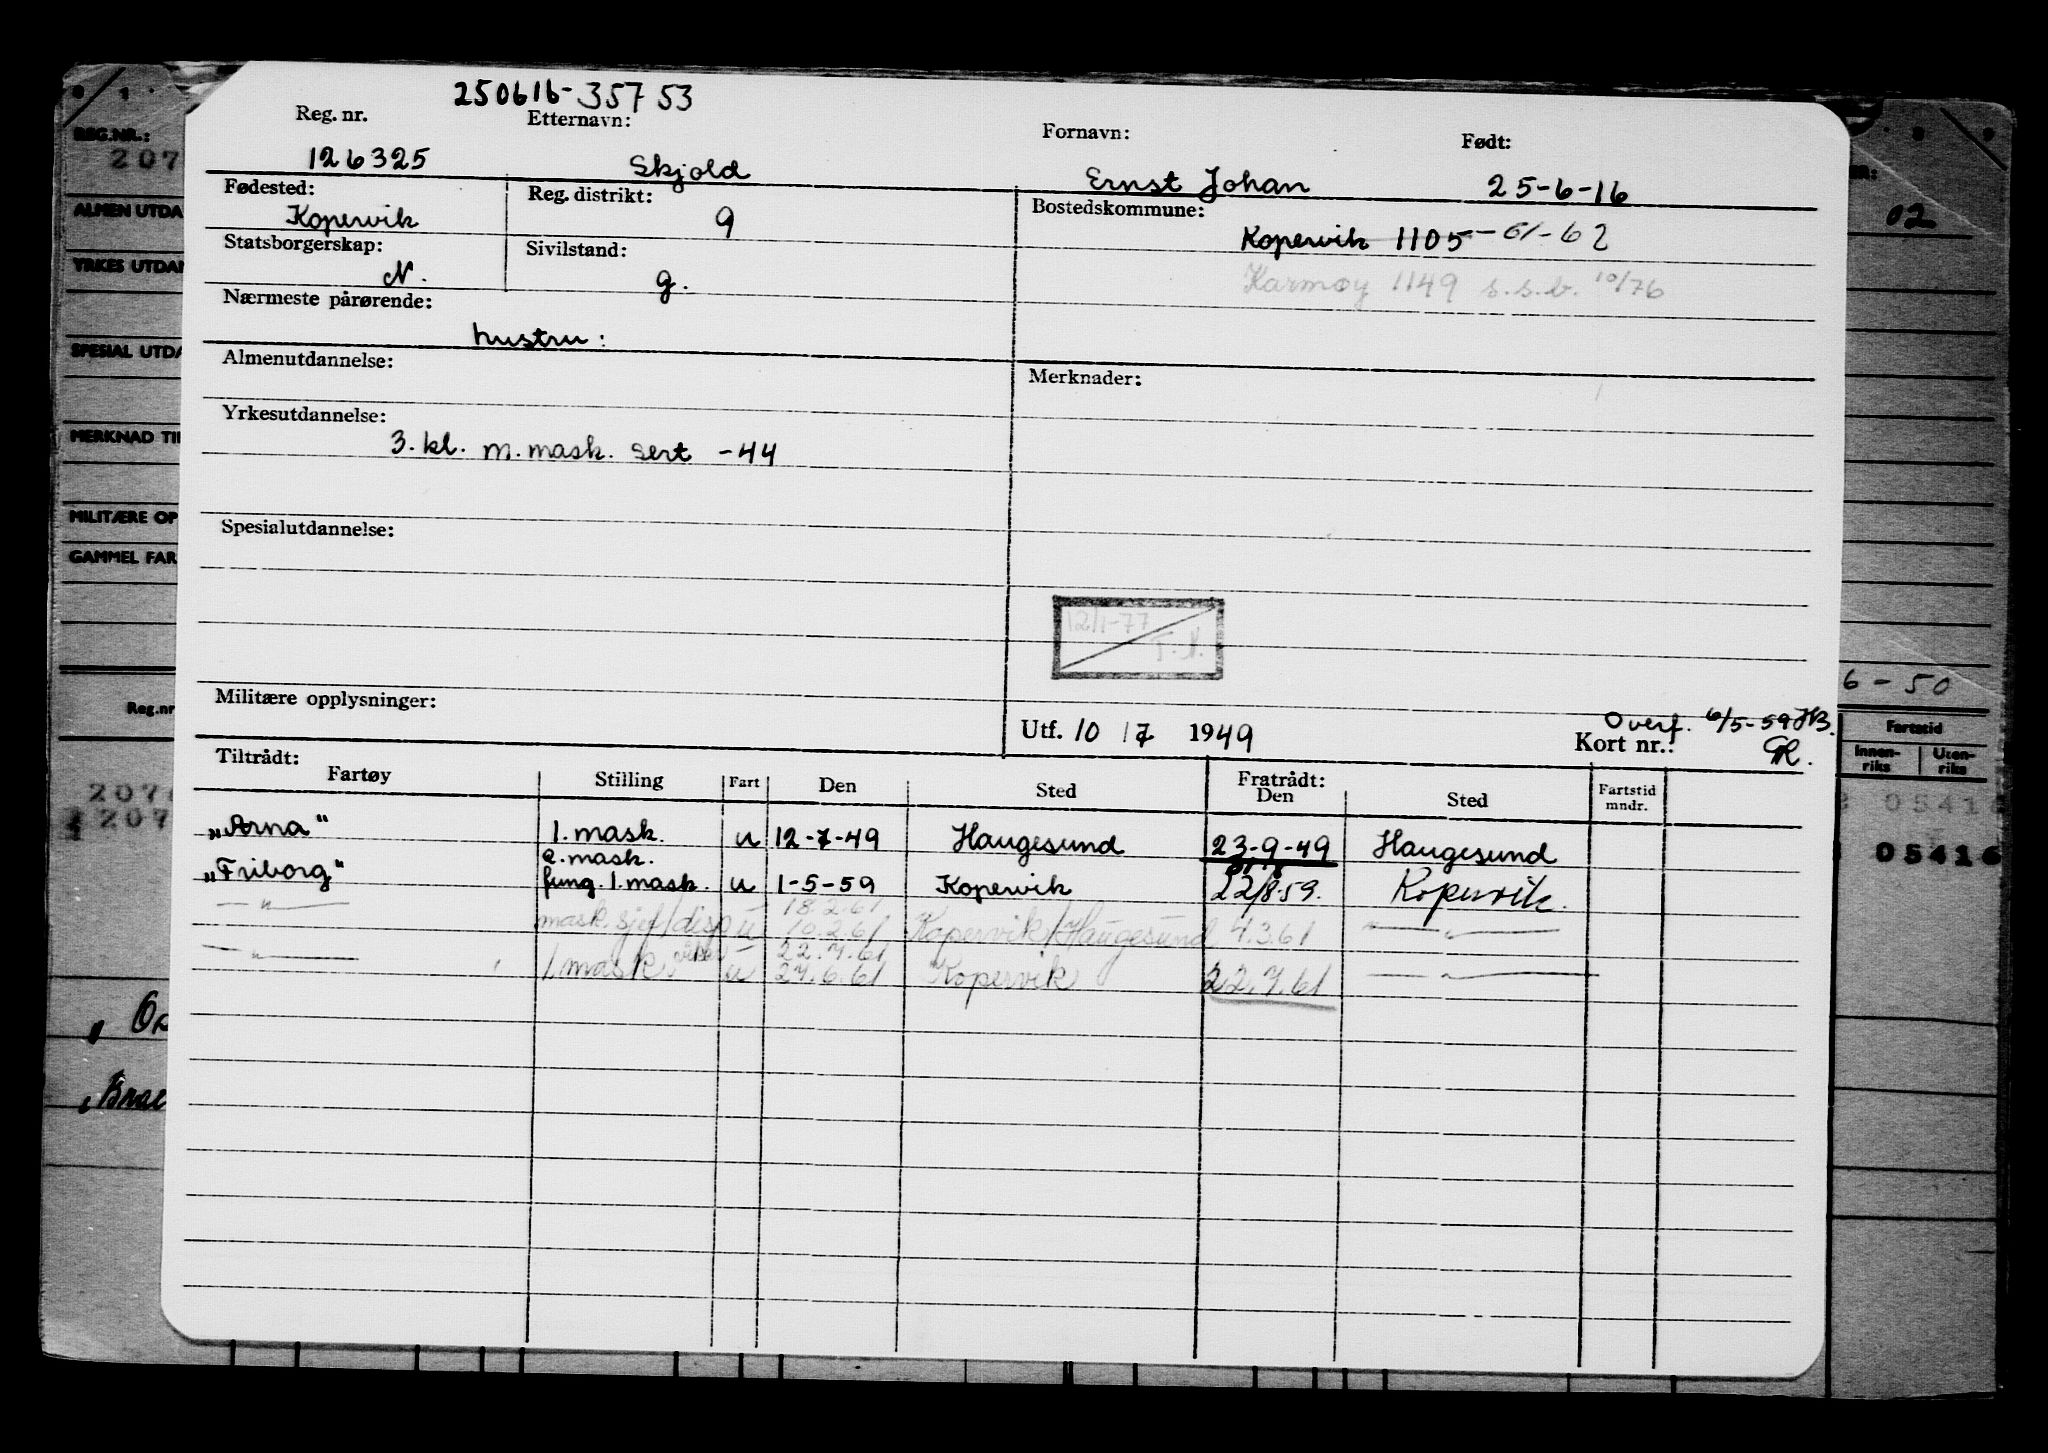 250616-35753
Reg. nr. Etternavn: Fornavn: Født:
126325 Skjold Ernst Johan 25-6-16
Fødested: Reg. distrikt: Bostedskommune:
Kopervik 9 Kopervik 1105 - 61-62
Statsborgerskap: Sivilstand:
N. g. Karmøy 1149 s.s.b. 10/76
Nærmeste pårørende:
hustru:
Almenutdannelse: Merknader:
Yrkesutdannelse:
3. kl. m. mask. sert -44
Spesialutdannelse:
12/1-77
T.N.
Militære opplysninger:
Utf. 10 / 7 1949 Overf. 6/5-59 HB.
Kort nr.:
Tiltrådt: Fratrådt:
Fartøy Stilling Fart Den Sted Den Sted Fartstid mndr.
"Arna" 1. mask. u 12-7-49 Haugesund 23-9-49 Haugesund
2. mask.
"Friborg" fung. 1. mask. u 1-5-59 Kopervik 22/8-59. Kopervik.
18.2.61
— " — mask. sjef/disp u 10.2.61 Kopervik/Haugesund 4.3.61 — " —
22.7.61
— " — 1. mask u 27.6.61 Kopervik 22.7.61 — " —
REG.NR.:
207
ALMEN UTDA
YRKES UTDAN
SPESIAL UTDA
MERKNAD TIL
MILITÆRE OP
GAMMEL FAR
Reg.nr
207
207
Brae
02
6-50
Fartstid
Innen-riks Uten-riks
05416
05416